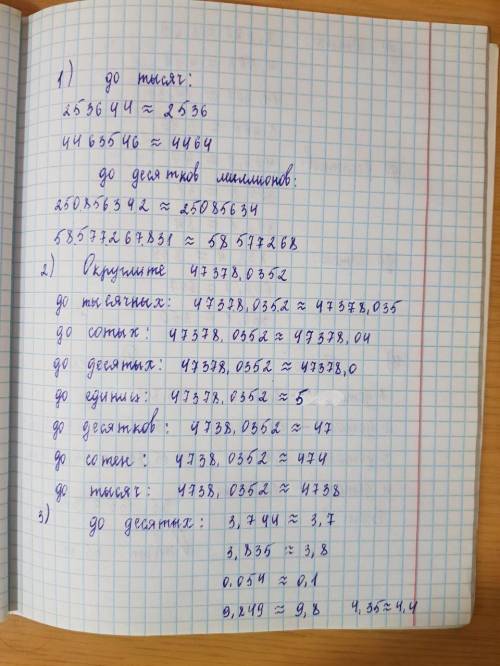 1) до тысяч:
253644 ≈ 2536
4463546 ≈ 4464
до десятков миллионов:
250856342 ≈ 25085634
58577267831 ≈ 58577268
2) Округлите 47378,0352
до тысячных: 47378,0352 ≈ 47378,035
до сотых: 47378,0352 ≈ 47378,04
до десятых: 47378,0352 ≈ 47378,0
до единиц: 47378,0352 ≈ 5
до десятков: 4738,0352 ≈ 47
до сотен: 4738,0352 ≈ 474
до тысяч: 4738,0352 ≈ 4738
3) до десятых: 3,744 ≈ 3,7
3,835 ≈ 3,8
0,054 ≈ 0,1
9,249 ≈ 9,8 4,35≈4,4